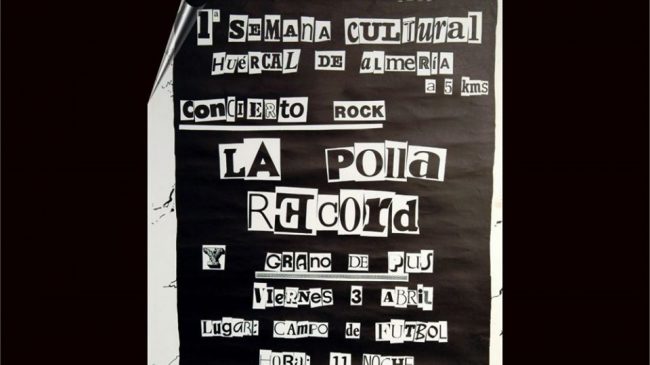 1ª SEMANA CULTURAL
HUÉRCAL DE ALMERÍA
A 5 KMS
CONCIERTO ROCK
LA POLLA
RECORD
Y GRANO DE PUS
VIERNES 3 ABRIL
LUGAR: CAMPO de FUTBOL
HORA: 11 NOCHE